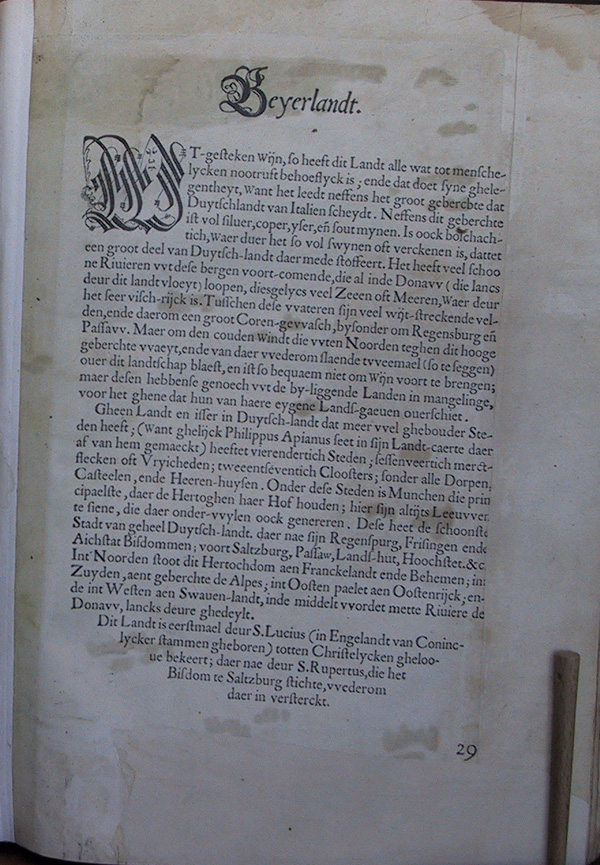 Beyerlandt.
WT-gesteken Wijn, so heeft dit Landt alle wat tot mensche-
lycken nootruft behoeflyck is; ende dat doet syne ghele-
gentheyt, Want het leedt neffens het groot geberchte dat
Duytschlandt van Italien scheydt. Neffens dit geberchte
ist vol siluer, coper, yser, eñ sout mynen. Is oock boschach-
tich, Waer duer het so vol swynen oft verckenen is, dattet
een groot deel van Duytsch-landt daer mede stoffeert. Het heeft veel schoo
ne Riuieren vvt dese bergen voort-comende, die al inde Donavv (die lancs
deur dit landt vloeyt) loopen, diesgelycs veel Zeeen oft Meeren, Waer deur
het seer visch-rijck is. Tusschen dese vvateren sijn veel wijt-streckende vel-
den, ende daerom een groot Coren-gevvasch, bysonder om Regensburg eñ
Passavv. Maer om den couden Windt die vvten Noorden teghen dit hooge
geberchte vvaeyt, ende van daer vvederom slaende tvveemael (so te seggen)
ouer dit landtschap blaest, en ist so bequaem niet om Wijn voort te brengen;
maer desen hebbense genoech vvt de by-liggende Landen in mangelinge,
voor het ghene dat hun van haere eygene Lands-gaeuen ouerschiet.
Gheen Landt en isser in Duytsch-landt dat meer vvel ghebouder Ste-
den heeft; (Want ghelijck Philippus Apianus seet in sijn Landt-caerte daer
af van hem gemaeckt) heeftet vierendertich Steden; sessenveertich merct-
flecken oft Vryicheden; tvveentseventich Cloosters; sonder alle Dorpen,
Casteelen, ende Heeren-huysen. Onder dese Steden is Munchen die prin
cipaelste, daer de Hertoghen haer Hof houden; hier sijn altijts Leeuvven
te siene, die daer onder-vvylen oock genereren. Dese heet de schoonste
Stadt van geheel Duytsch-landt. daer nae sijn Regenspurg, Frisingen ende
Aichstat Bisdommen; voort Saltzburg, Passaw, Lands-hut, Hoochstet. &c
Int Noorden stoot dit Hertochdom aen Franckelandt ende Behemen; int
Zuyden, aent geberchte de Alpes; int Oosten paelet aen Oostenrijck; en-
de int Westen aen Swauen-landt, inde middelt vvordet mette Riuiere de
Donavv, lancks deure ghedeylt.
Dit Landt is eerstmael deur S. Lucius (in Engelandt van Coninc-
lycker stammen gheboren) totten Christelycken gheloo-
ue bekeert; daer nae deur S. Rupertus, die het
Bisdom te Saltzburg stichte, vvederom
daer in versterckt.
29